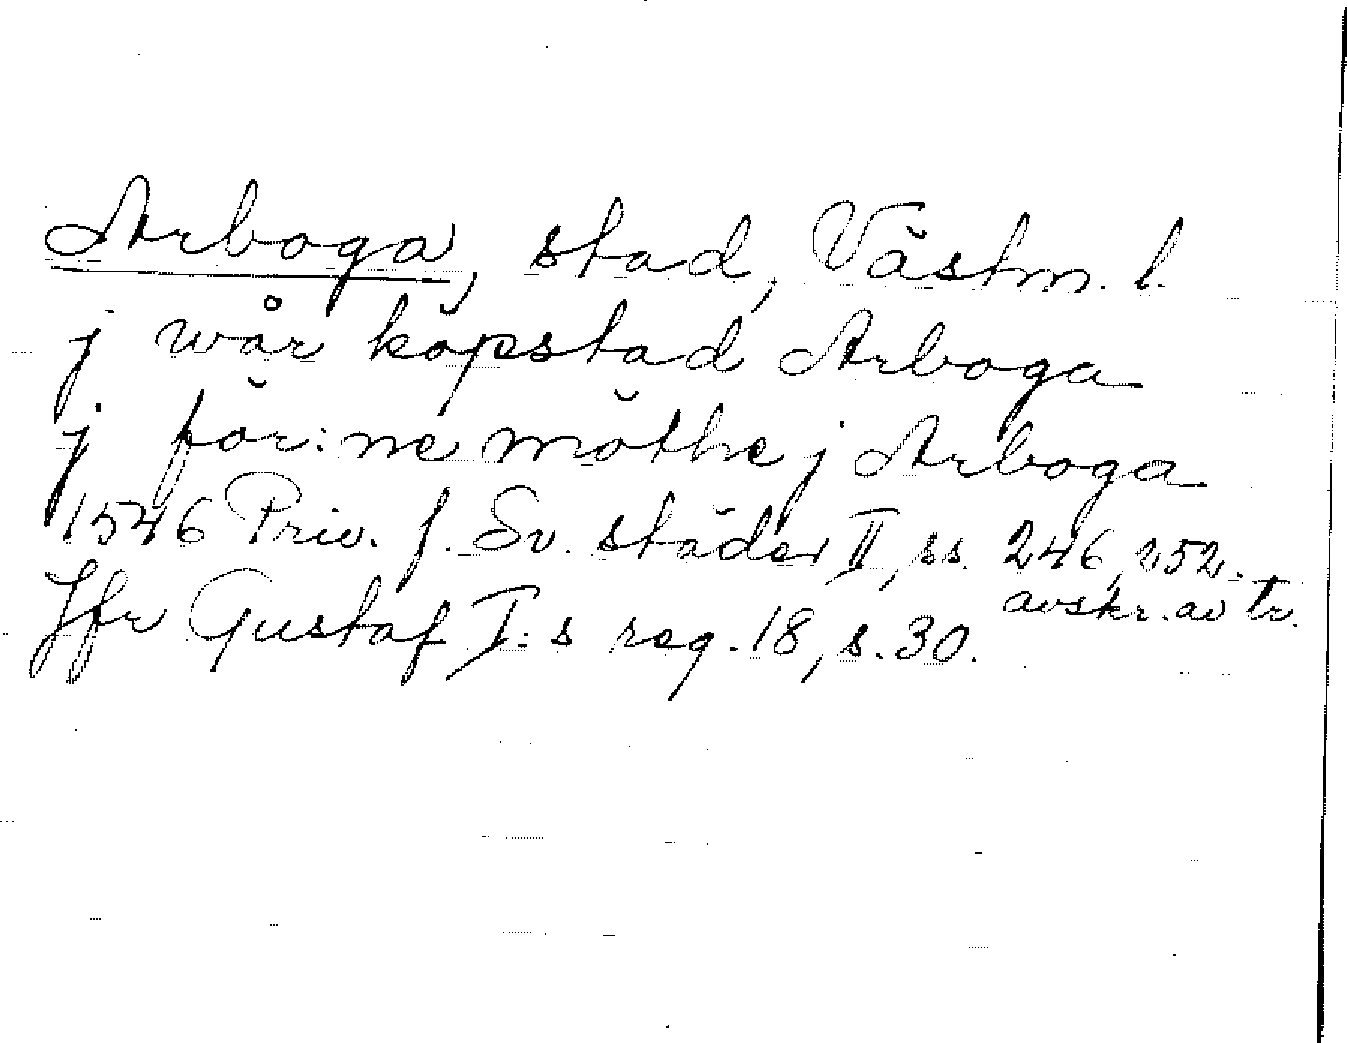 Arboga, stad, Västm. l.
j wår köpstad Arboga
j för:ne möthe j Arboga
1546 Priv. f. Sv. städer II, ss. 246, 252.
avskr. av tr.
Jfr Gustaf I:s reg. 18, s. 30.